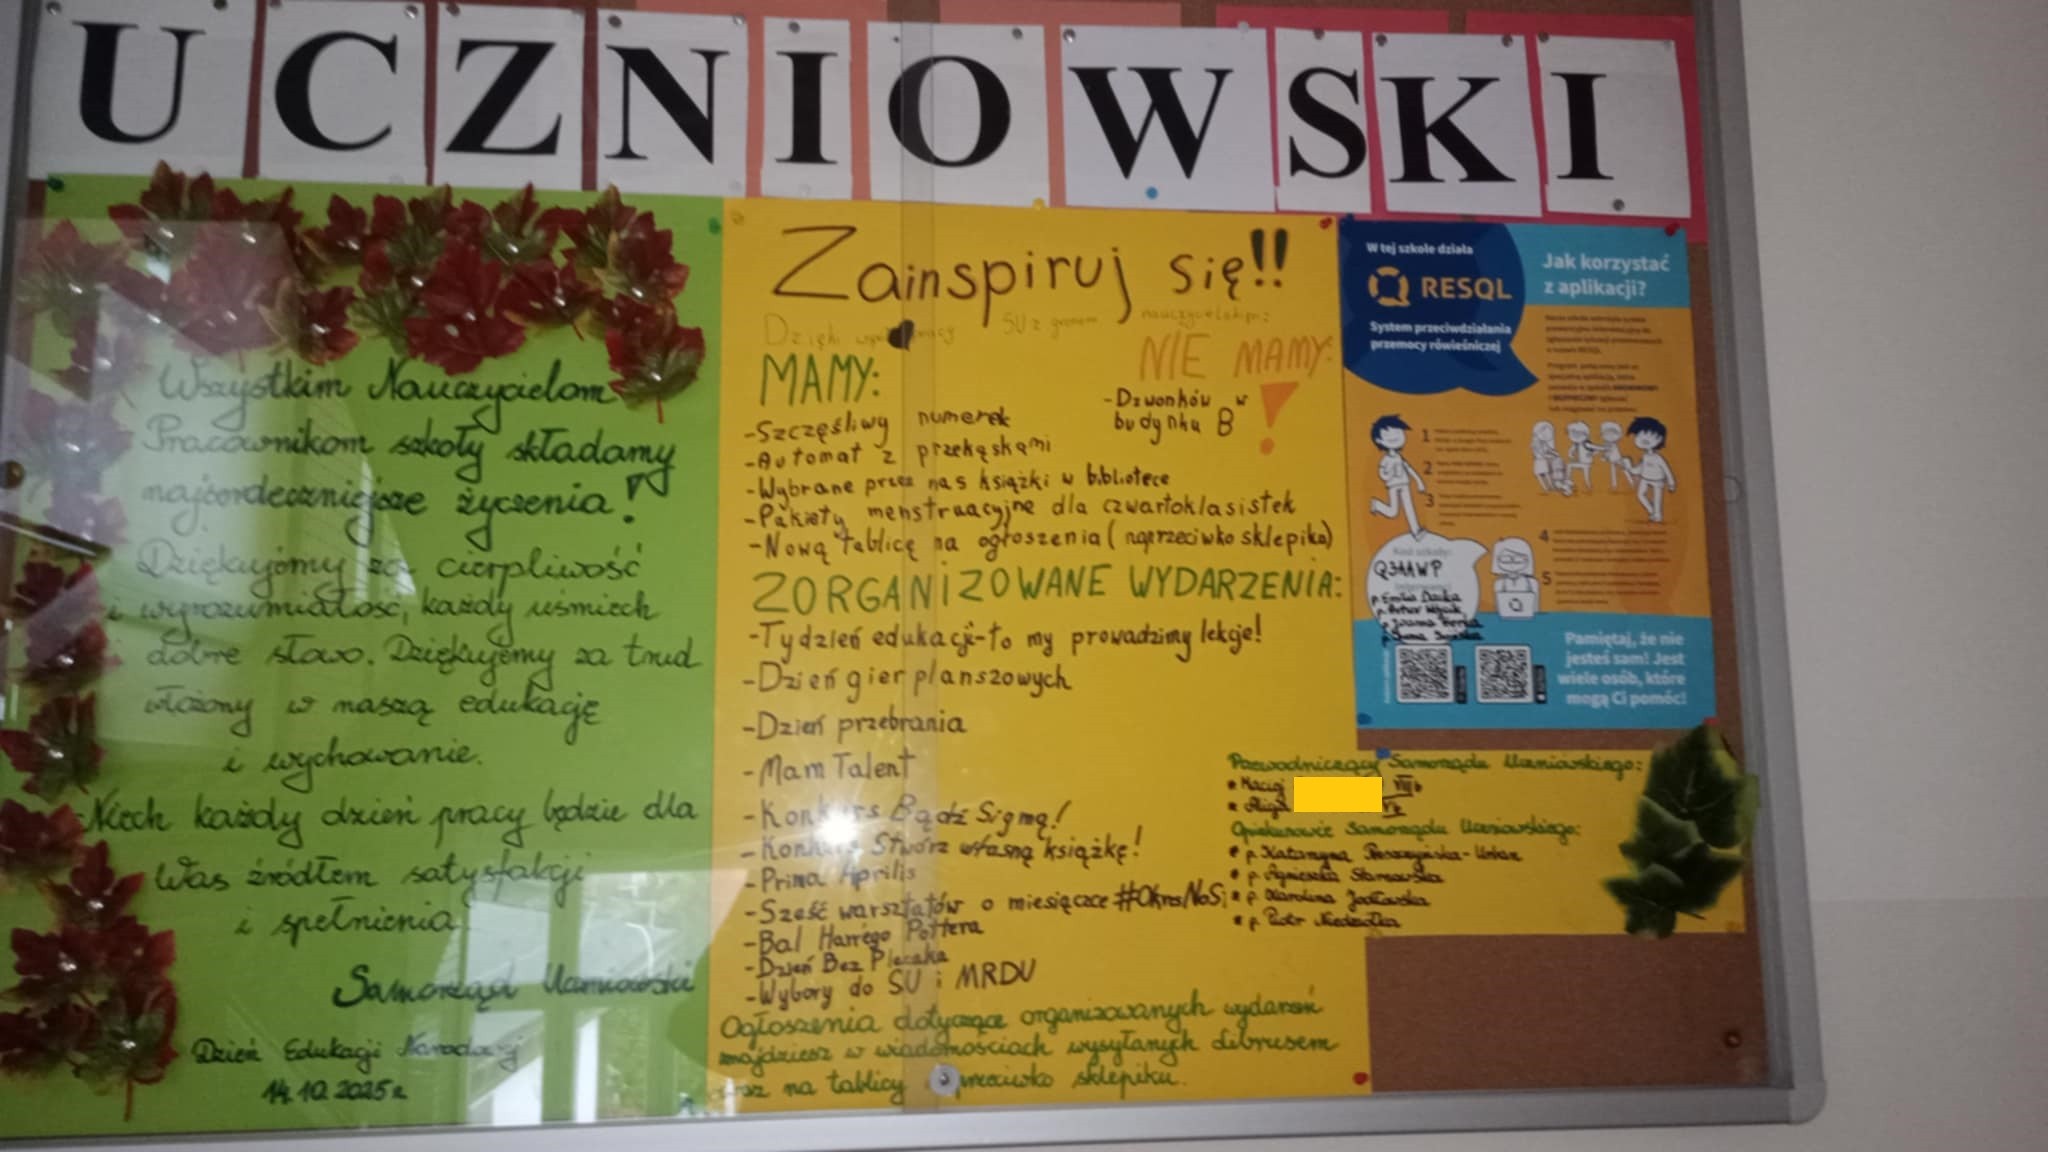 UCZNIOWSKI
Wszystkim Nauczycielom
Pracownikom szkoły składamy
najserdeczniejsze życzenia!
Dziękujemy za cierpliwość
i wyrozumiałość, każdy uśmiech
i dobre słowo. Dziękujemy za trud
włożony w naszą edukację
i wychowanie.
Niech każdy dzień pracy będzie dla
Was źródłem satysfakcji
i spełnienia
Samorząd Uczniowski
Dzień Edukacji Narodowej
14.10.2025r.
Zainspiruj się!!
Dzięki SU z gronem nauczycielskim:
MAMY:
-Szczęśliwy numerek
-Automat z przekąskami
-Wybrane przez nas książki w bibliotece
-Pakiety menstruacyjne dla czwartoklasistek
-Nową tablicę na ogłoszenia (naprzeciwko sklepiku)
NIE MAMY:
-Dzwonków w
budynku B
!
ZORGANIZOWANE WYDARZENIA:
-Tydzień edukacji-to my prowadzimy lekcje!
-Dzień gier planszowych
-Dzień przebrania
-Mam Talent
-Konkurs Bądź Sigmą!
-Konkurs Stwórz własną książkę!
-Prima Aprilis
-Sześć warsztatów o miesiączce #OkresNoSi
-Bal Harrego Pottera
-Dzień Bez Plecaka
-Wybory do SU i MRDU
Ogłoszenia dotyczące organizowanych wydarzeń
znajdziesz w wiadomościach wysyłanych librusem
oraz na tablicy sklepiku.
W tej szkole działa
RESQL
System przeciwdziałania
przemocy rówieśniczej
Jak korzystać
z aplikacji?
1
2
3
4
5
Kod szkoły:
Q34AWP
Pamiętaj, że nie
jesteś sam! Jest
wiele osób, które
mogą Ci pomóc!
Przewodniczący Samorządu Uczniowskiego:
Maciej VIIIb
Alicja
Opiekunowie Samorządu Uczniowskiego:
p. Katarzyna
p. Agnieszka
p. Karolina
p. Piotr